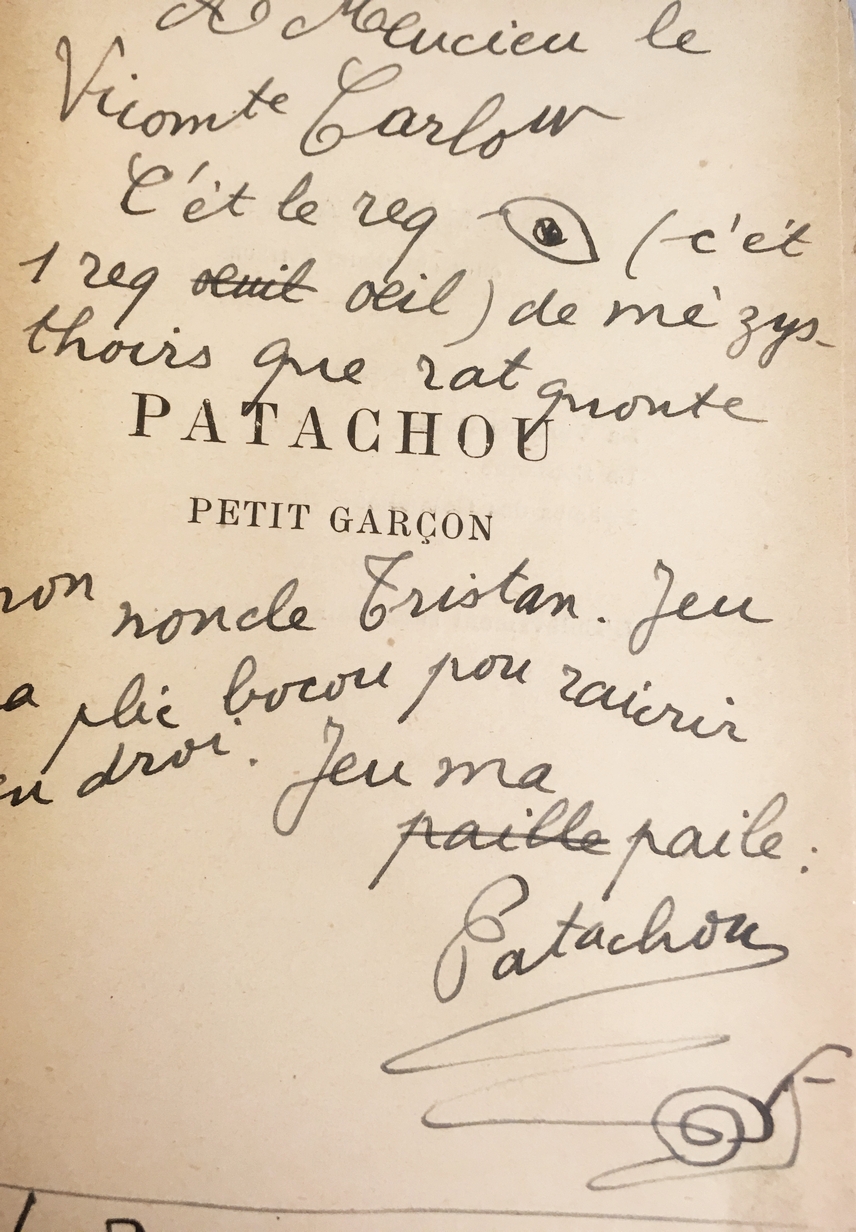 A Meucieu le
Vicomte Carlow
C'ét le req (-c'ét
1 req oeuil oeil) de mé zys-
thoirs que rat quonte
PATACHOU
PETIT GARÇON
mon noncle Tristan. Jeu
a plié bocou pou raicrir
eu droi. Jeu ma
paille paile :
Patachou